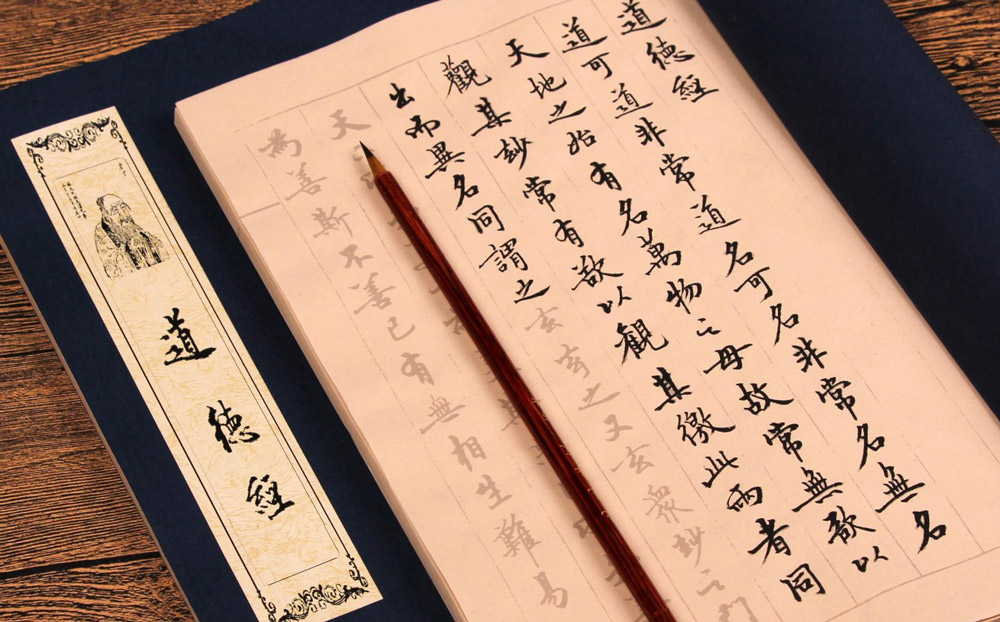 道德經
道可道非常道名可名非常名無名
天地之始有名萬物之母故常無欲以
觀其妙常有欲以觀其徼此兩者同
出而異名同謂之玄玄之又玄衆妙之門
天
為善斯不善已有無相生難易
道德經